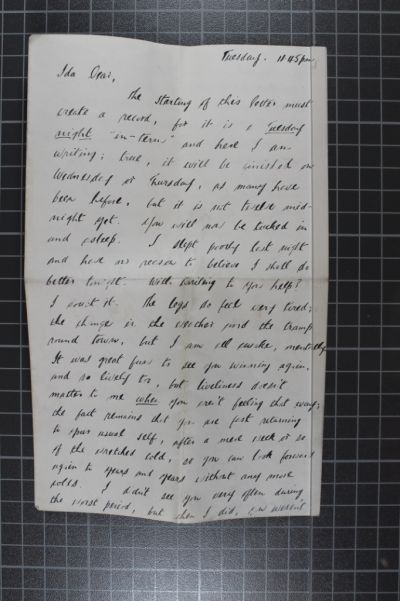 Tuesday. 11.45pm.
Ida Dear,
The starting of this letter must
create a record, for it is a Tuesday
night "in-term" and here I am
writing; true, it will be finished on
Wednesday or Thursday, as many have
been before, but it is not twelve mid-
night yet. You will now be tucked in
and asleep. I slept poorly last night
and have no reason to believe I shall do
better tonight. Will writing to you help?
I doubt it. The legs do feel very tired;
the change in the weather and the tramp
round town, but I am all awake, mentally.
It was great fun to see you running again,
and so lively too, but liveliness doesn't
matter to me when you aren't feeling that way;
the fact remains that you are fast returning
to your usual self, after a mere week or so
of the wretched cold, so you can look forward
again to years and years without any more
colds. I didn't see you very often during
the worst period, but when I did, you weren't